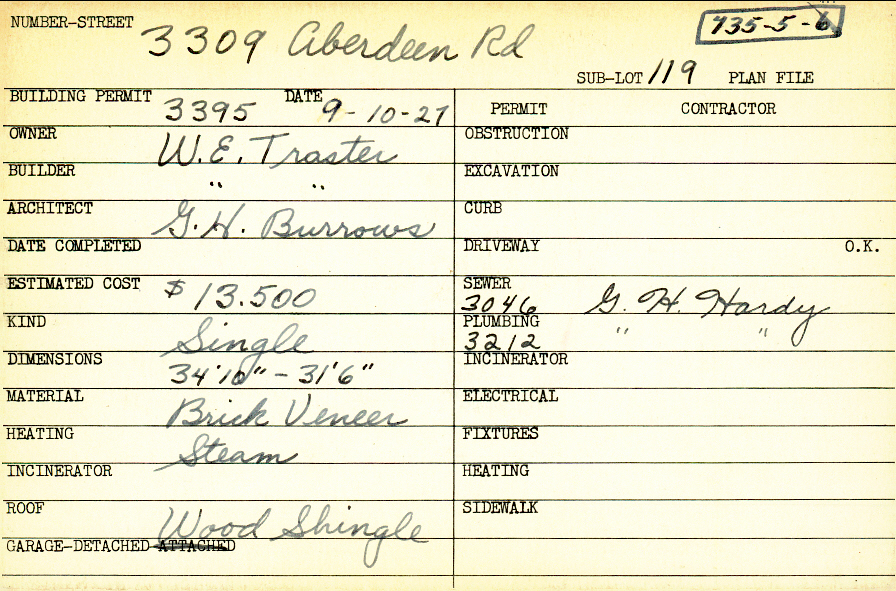 NUMBER-STREET 3309 Aberdeen Rd 735-5-6
SUB-LOT 119 PLAN FILE
BUILDING PERMIT 3395 DATE 9-10-27 PERMIT CONTRACTOR
OWNER W.E. Traster OBSTRUCTION
BUILDER " " EXCAVATION
ARCHITECT G.H. Burrows CURB
DATE COMPLETED DRIVEWAY O.K.
ESTIMATED COST $13.500 SEWER 3046 G. H. Hardy
KIND Single PLUMBING 3212 " "
DIMENSIONS 34'10" - 31'6" INCINERATOR
MATERIAL Brick Veneer ELECTRICAL
HEATING Steam FIXTURES
INCINERATOR HEATING
ROOF Wood Shingle SIDEWALK
GARAGE-DETACHED-ATTACHED